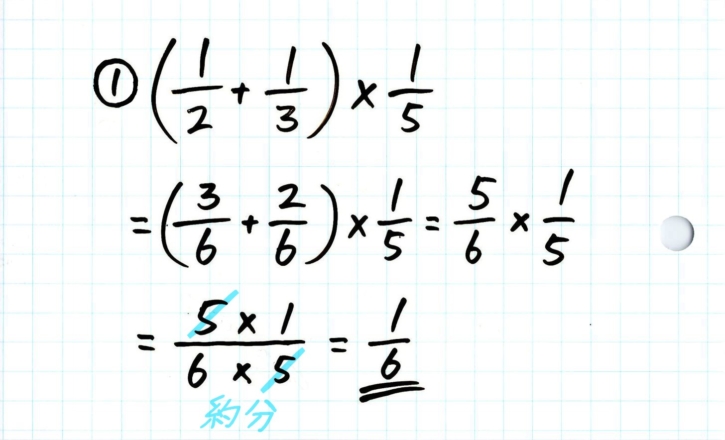 ① (1/2 + 1/3) × 1/5
= (3/6 + 2/6) × 1/5 = 5/6 × 1/5
= 5 × 1 / 6 × 5 = 1/6
約分